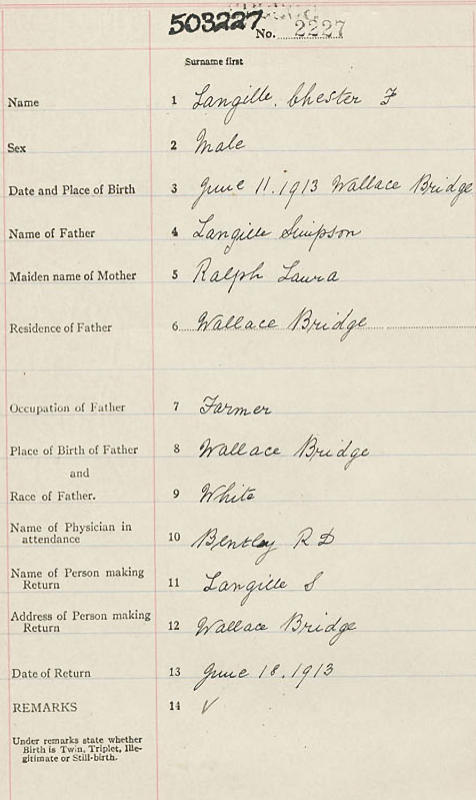 503227 No. 2227
Surname first
Name 1 Langille, Chester F
Sex 2 Male
Date and Place of Birth 3 June 11. 1913 Wallace Bridge
Name of Father 4 Langille Simpson
Maiden name of Mother 5 Ralph Laura
Residence of Father 6 Wallace Bridge
Occupation of Father 7 Farmer
Place of Birth of Father 8 Wallace Bridge
and
Race of Father. 9 White
Name of Physician in
attendance 10 Bentley R D
Name of Person making
Return 11 Langille S
Address of Person making
Return 12 Wallace Bridge
Date of Return 13 June 18. 1913
REMARKS 14 √
Under remarks state whether
Birth is Twin, Triplet, Ille-
gitimate or Still-birth.